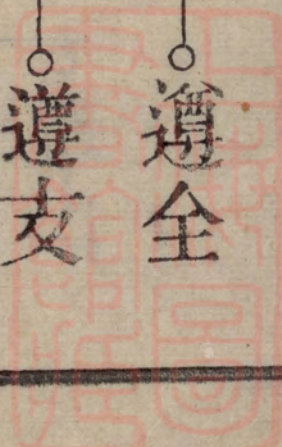 遵全
遵支